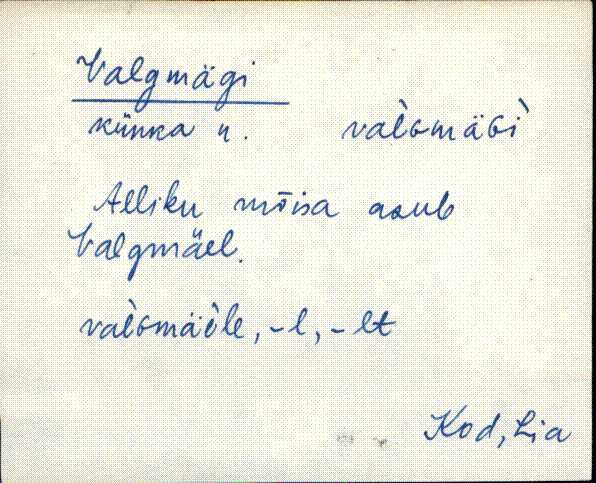 Valgmägi
künka n. val̀ɢmäɢì
Alliku mõisa asub
Valgmäel.
val̀ɢmäèle, -l, -lt
Kod, Lia